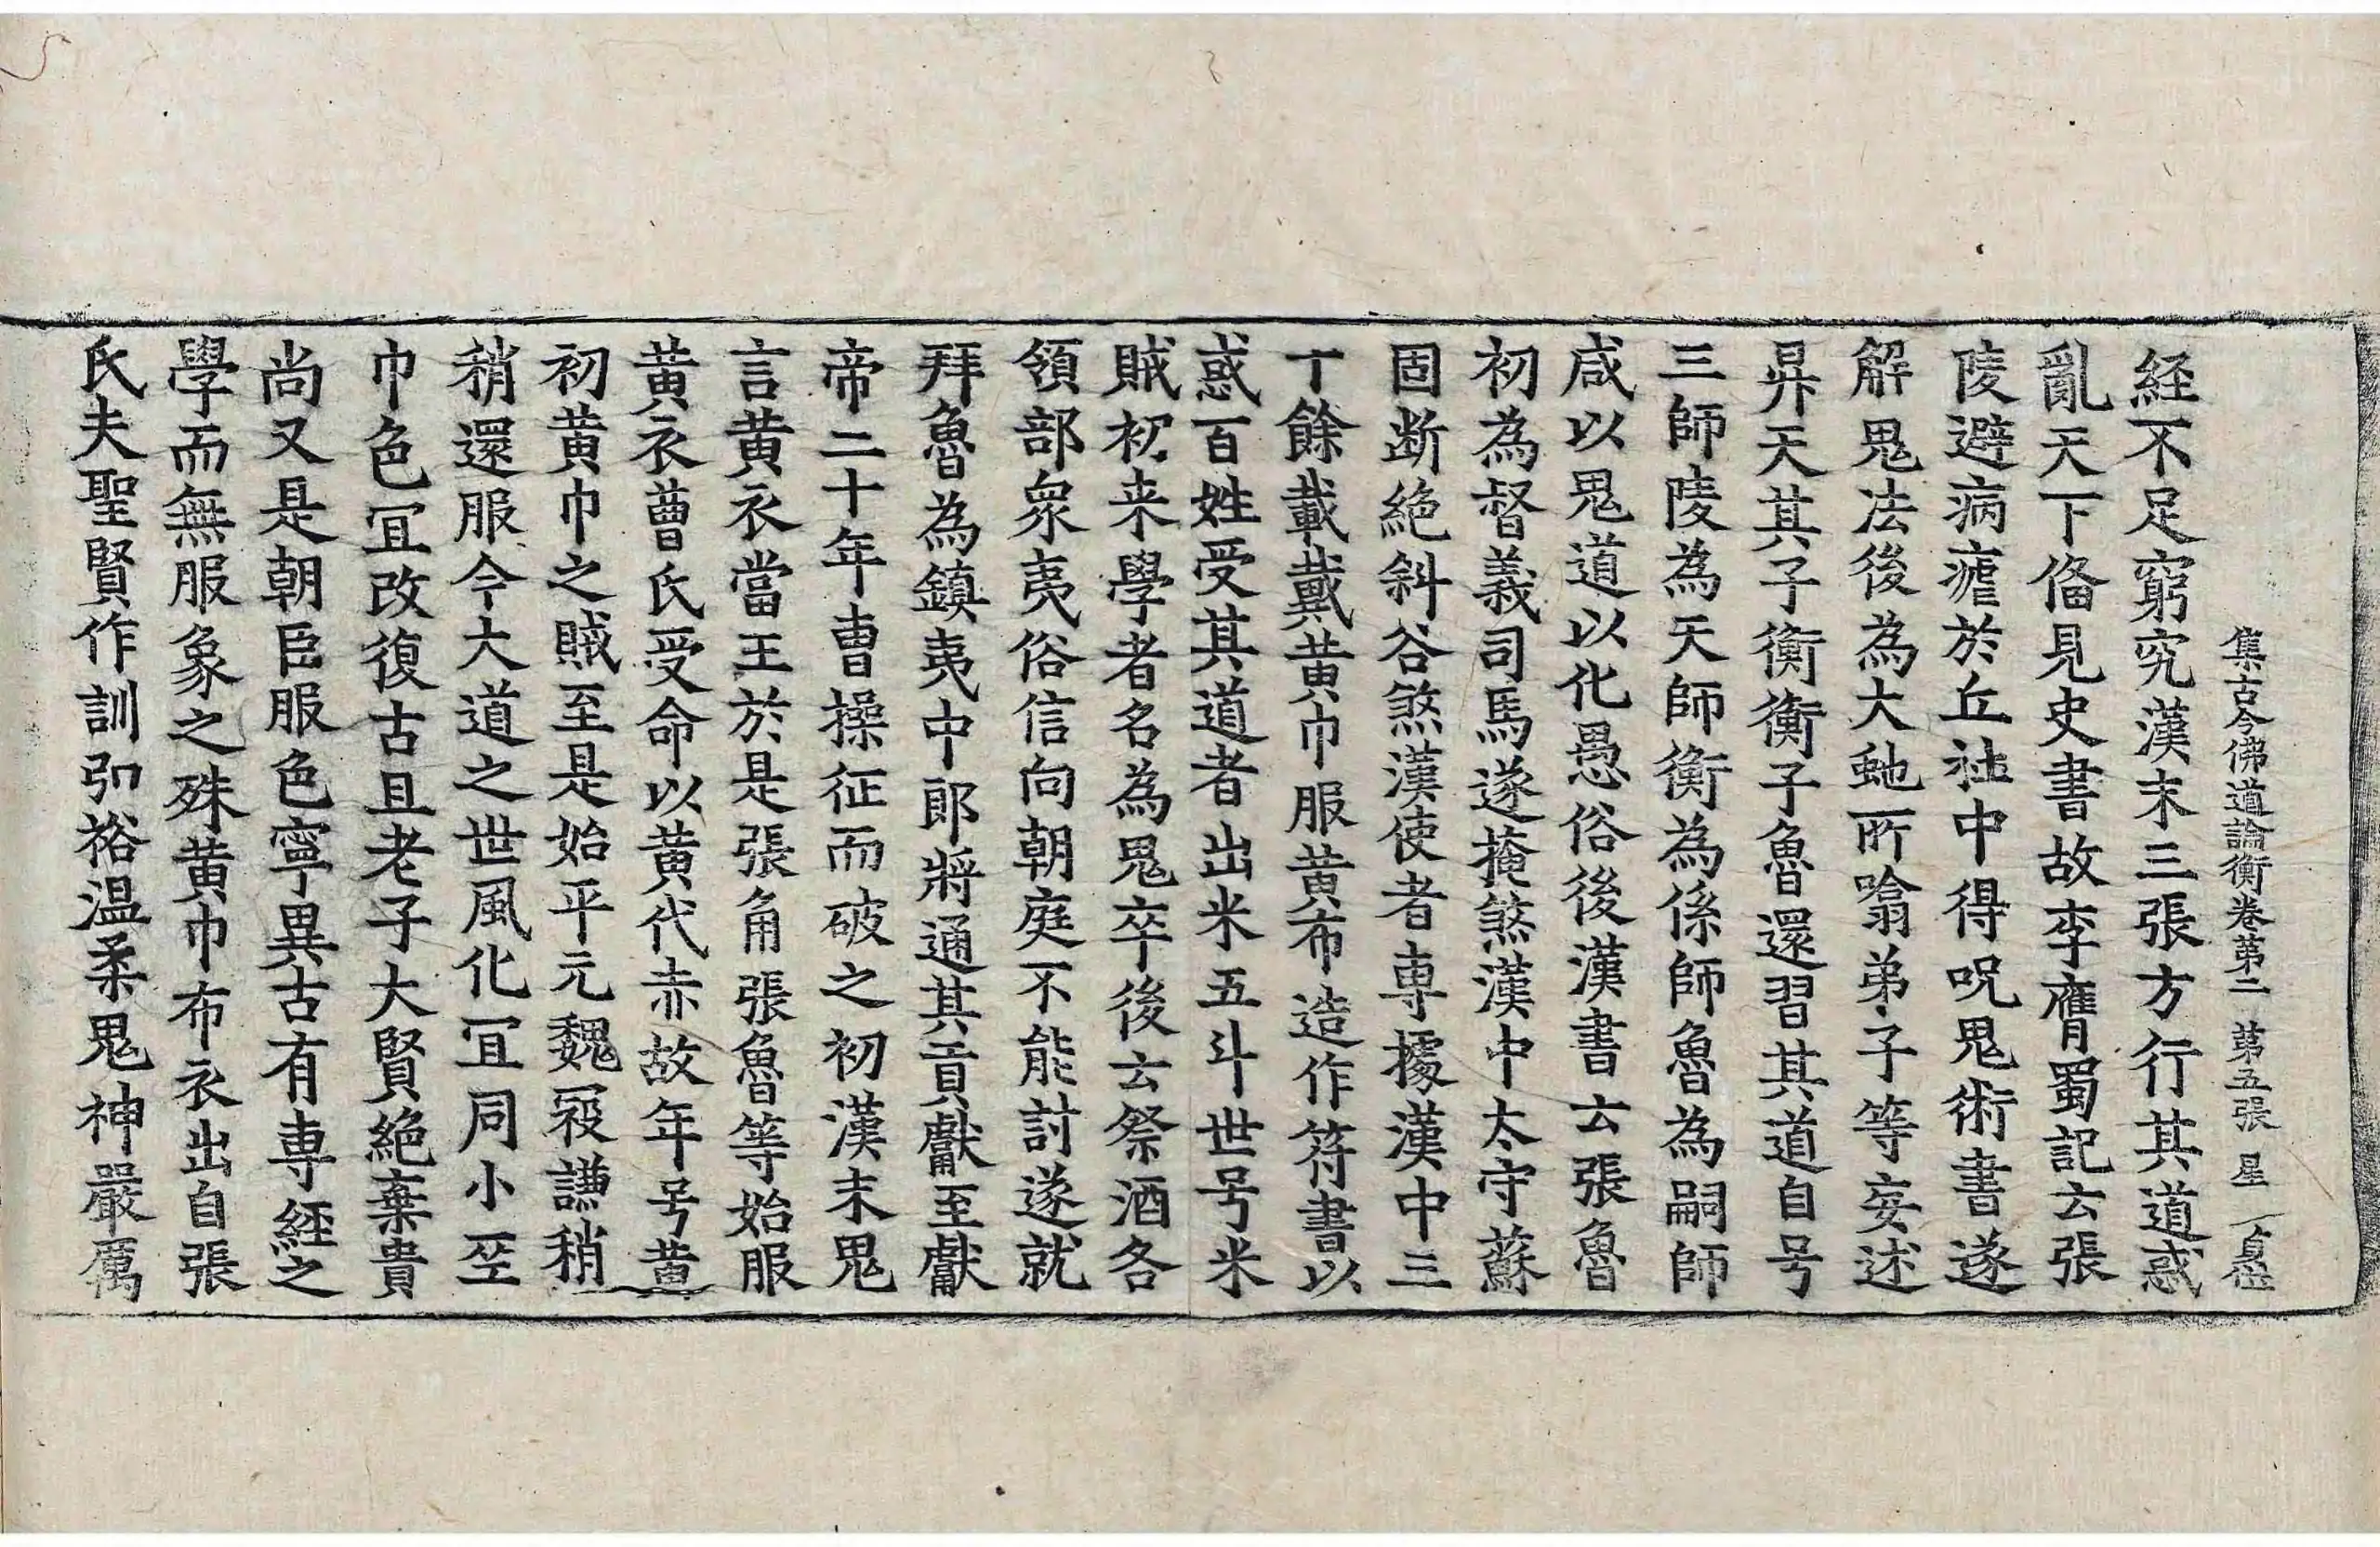 集古今佛道論衡卷第二 第五張 星
経不足窮究漢末三張方行其道惑
亂天下俻見史書故李膺蜀記云張
陵避病瘧於丘社中得呪鬼術書遂
解鬼法後為大虵所噏弟子等妄述
昇天其子衡衡子魯還習其道自号
三師陵為天師衡為係師魯為嗣師
咸以鬼道以化愚俗後漢書云張魯
初為督義司馬遂掩煞漢中太守蘇
固断絶斜谷煞漢使者專據漢中三
十餘載戴黄巾服黄布造作符書以
惑百姓受其道者出米五斗世号米
賊初来學者名為鬼卒後云祭酒各
領部衆夷俗信向朝庭不能討遂就
拜魯為鎮夷中郎將通其貢獻至獻
帝二十年曹操征而破之初漢末鬼
言黄衣當王於是張角張魯等始服
黄衣曹氏受命以黄代赤故年号黄
初黄巾之賊至是始平元魏寇謙稍
稍還服今大道之世風化冝同小巫
巾色冝改復古且老子大賢絶棄貴
尚又是朝臣服色寧異古有專経之
學而無服象之殊黄巾布衣出自張
氏夫聖賢作訓弘裕温柔鬼神嚴厲